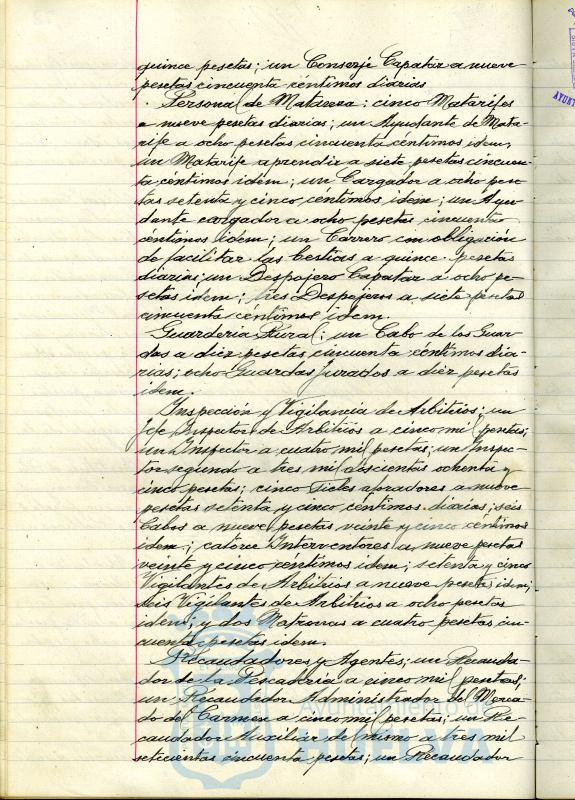 quince pesetas; un Conserje Capataz a nueve
pesetas cincuenta céntimos diarias
Personal de Matanza: cinco Matarifes
a nueve pesetas diarias; un Ayudante de Mata-
rife a ocho pesetas cincuenta céntimos idem,
un Matarife aprendiz a siete pesetas cincuen-
ta céntimos idem; un Cargador a ocho pese-
tas setenta y cinco céntimos idem; un Ayu-
dante cargador a ocho pesetas cincuenta
céntimos idem; un Carrero con obligación
de facilitar las bestias a quince pesetas
diarias; un Despojero Capataz a ocho pe-
setas idem; tres Despojeros a siete pesetas
cincuenta céntimos idem.
Guardería Rural: un Cabo de los Guar-
das a diez pesetas cincuenta céntimos dia-
rias; ocho Guardas Jurados a diez pesetas
idem.
Inspección y Vigilancia de Arbitrios; un
Jefe Inspector de Arbitrios a cinco mil pesetas;
un Inspector a cuatro mil pesetas; un Inspec-
tor segundo a tres mil doscientas ochenta y
cinco pesetas; cinco Fieles aforadores a nueve
pesetas setenta y cinco céntimos diarias; seis
Cabos a nueve pesetas veinte y cinco céntimos
idem; catorce Interventores a nueve pesetas
veinte y cinco céntimos idem; setenta y cinco
Vigilantes de Arbitrios a nueve pesetas idem;
seis Vigilantes de Arbitrios a ocho pesetas
idem; y dos Matronas a cuatro pesetas cin-
cuenta pesetas idem.
Recaudadores y Agentes; un Recauda-
dor de la Pescadería a cinco mil pesetas;
un Recaudador Administrador del Merca-
do del Carmen a cinco mil pesetas; un Re-
caudador Auxiliar del mismo a tres mil
setecientas cincuenta pesetas; un Recaudador
Ayuntamiento de
HUELVA
AYUNT